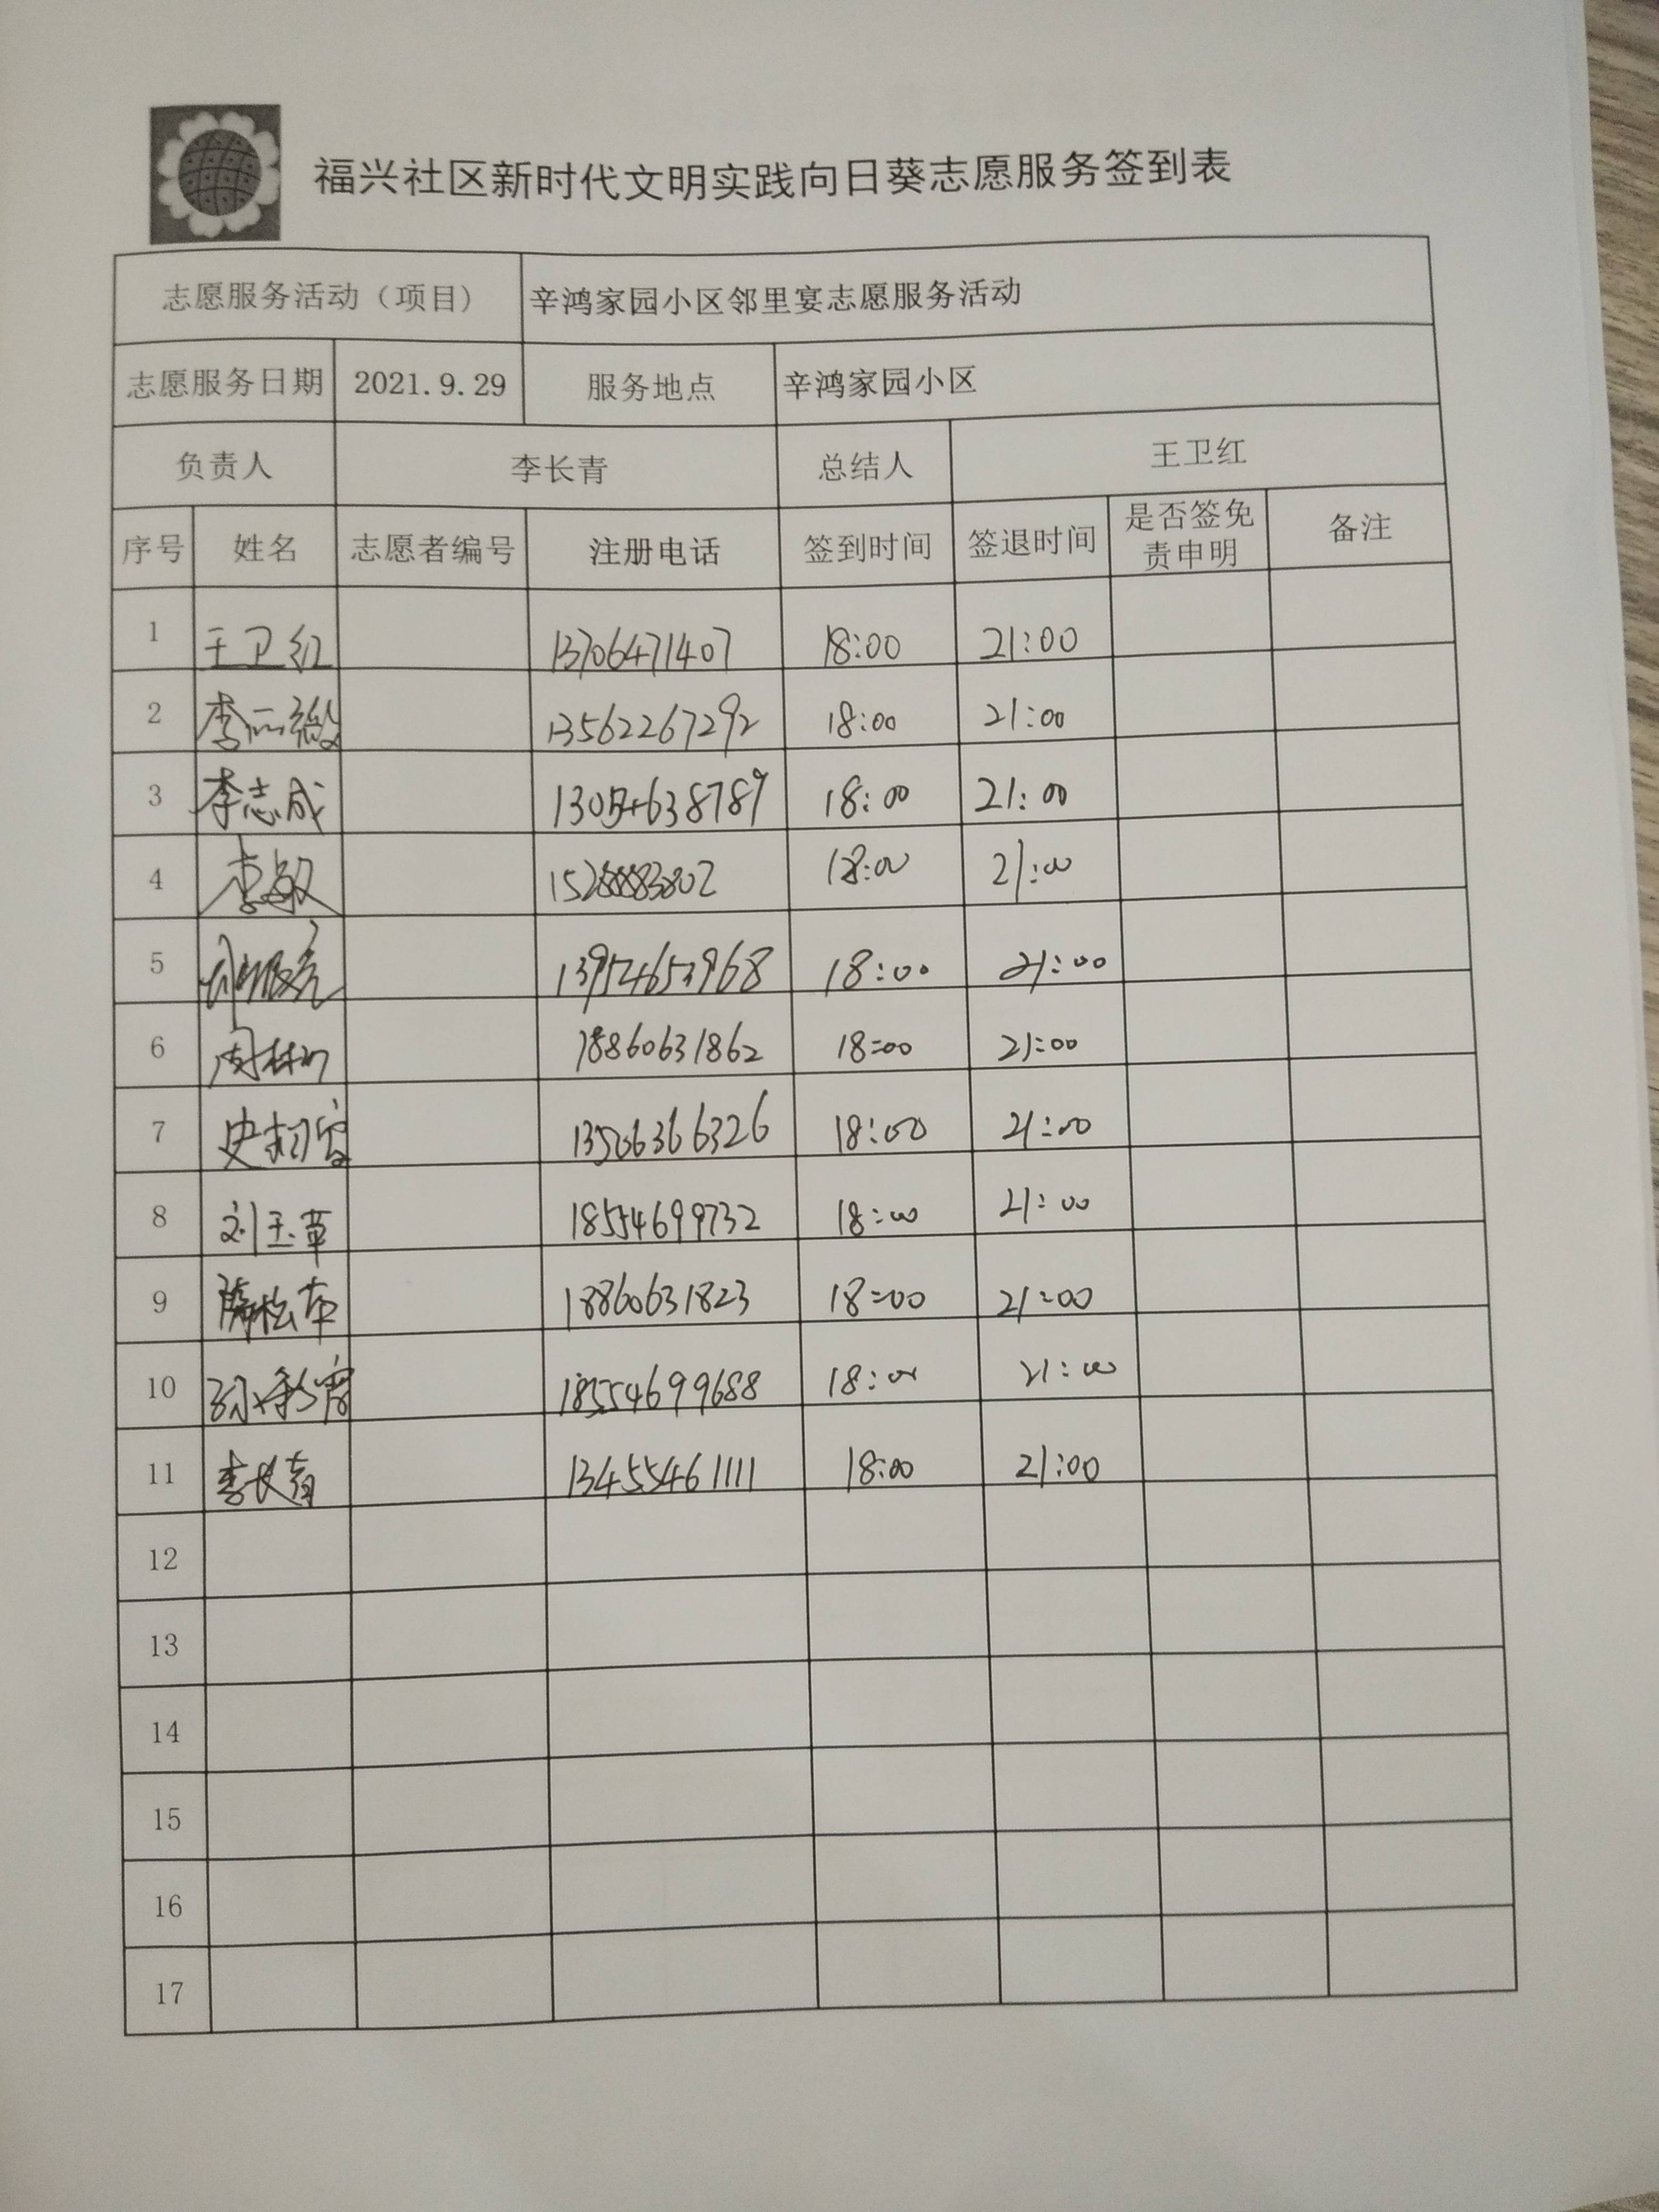 福兴社区新时代文明实践向日葵志愿服务签到表
志愿服务活动（项目） 辛鸿家园小区邻里宴志愿服务活动
志愿服务日期 2021.9.29 服务地点 辛鸿家园小区
负责人 李长青 总结人 王卫红
序号 姓名 志愿者编号 注册电话 签到时间 签退时间 是否签免责申明 备注
1 王卫红 13706471407 18:00 21:00
2 13562267292 18:00 21:00
3 李志成 18:00 21:00
4 李敏 18:00 21:00
5 13954653968 18:00 21:00
6 18860631862 18:00 21:00
7 13506366326 18:00 21:00
8 刘玉草 18554699732 18:00 21:00
9 18860631823 18:00 21:00
10 18554699688 18:00 21:00
11 李长青 13455461111 18:00 21:00
12
13
14
15
16
17